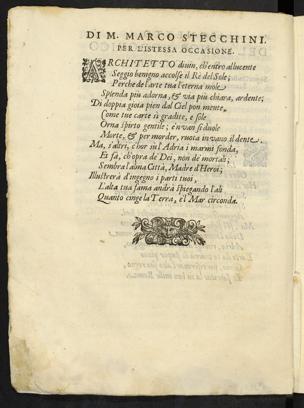 DI M. MARCO STECCHINI.
PER L'ISTESSA OCCASIONE.
ARCHITETTO diuin, ch'entro allucente
Seggio benigno accolse il Rè del Sole;
Perche de l'arte tua l'eterna mole
Splenda più adorna, & via più chiara, ardente;
Di doppia gioia pien dal Ciel pon mente,
Come tue carte si gradite, e sole
Orna spirto gentile; e'n van si duole
Morte, & per morder, ruota in vano il dente.
Ma, s'altri, c'hor in l'Adria i marmi fonda,
Et fà, ch'opra de Dei, non dè mortali;
Sembra l'alma Città, Madre d'Heroi;
Illustrerà d'ingegno i parti tuoi,
L'alta tua fama andrà spiegando l'ali
Quanto cinge la Terra, e'l Mar circonda.